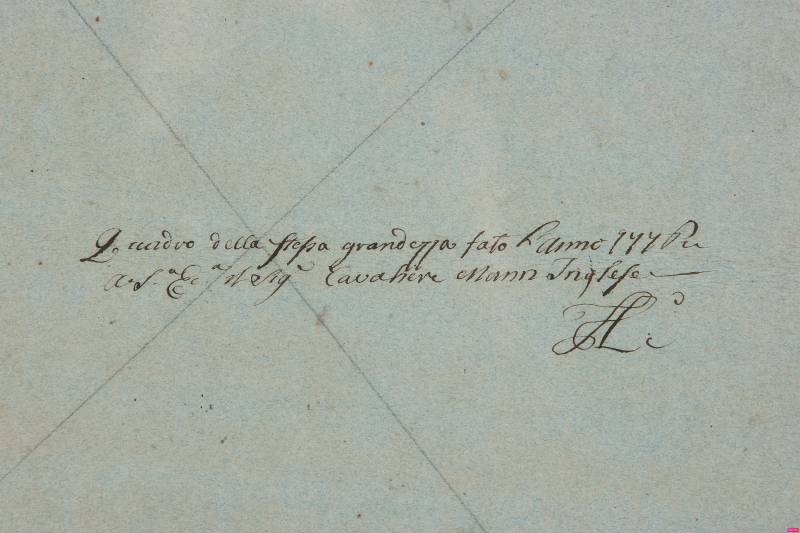 Quadro della stessa grandezza fato L'anno 177
a S.a Ec.a il Sig.r Cavaliere Mann Inglese